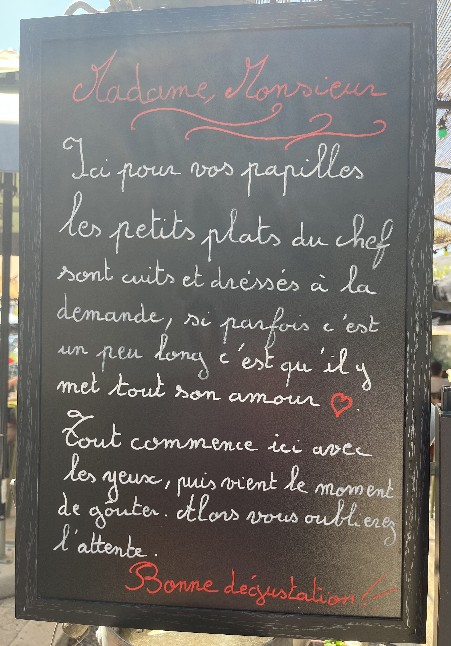 Madame, Monsieur
Ici pour vos papilles
les petits plats du chef
sont cuits et dréssés à la
demande, si parfois c'est
un peu long c'est qu'il y
met tout son amour ♡.
Tout commence ici avec
les yeux, puis vient le moment
de goûter. Alors vous oublierez
l'attente.
Bonne dégustation !